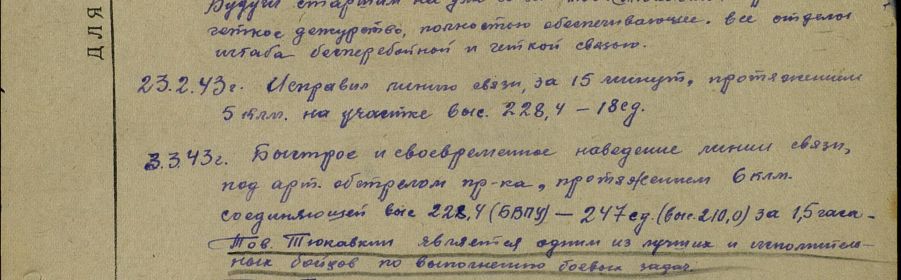 Будучи старшим на
четкое дежурство, полностью обеспечивающее. все отделы
штаба бесперебойной и четкой связью.
23.2.43г. Исправил линию связи, за 15 минут, протяжением
5 клм. на участке выс. 228,4 – 18 сд.
3.3.43г. Быстрое и своевременное наведение линии связи,
под арт. обстрелом пр-ка, протяжением 6 клм.
соединяющей выс 228,4 (БВПУ) – 247 сд. (выс. 210,0) за 1,5 часа-
Тов. Тюкавкин является одним из лучших и исполнитель-
ных бойцов по выполнению боевых задач.
ДЛЯ